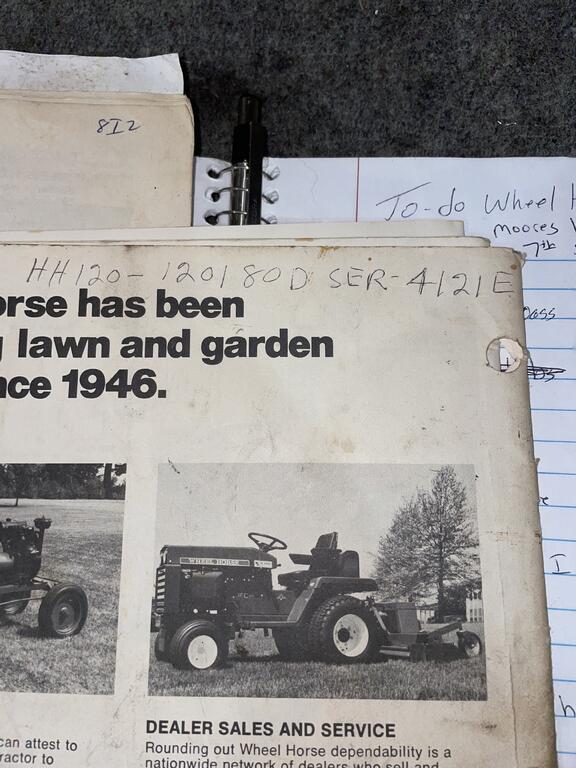 8I2
To-do Wheel
Moores
7th
HH120-120180D SER-4121E
orse has been
lawn and garden
nce 1946.
oass
WHEEL HORSE
I
h
DEALER SALES AND SERVICE
can attest to
ractor to
Rounding out Wheel Horse dependability is a
nationwide network of dealers who sell and